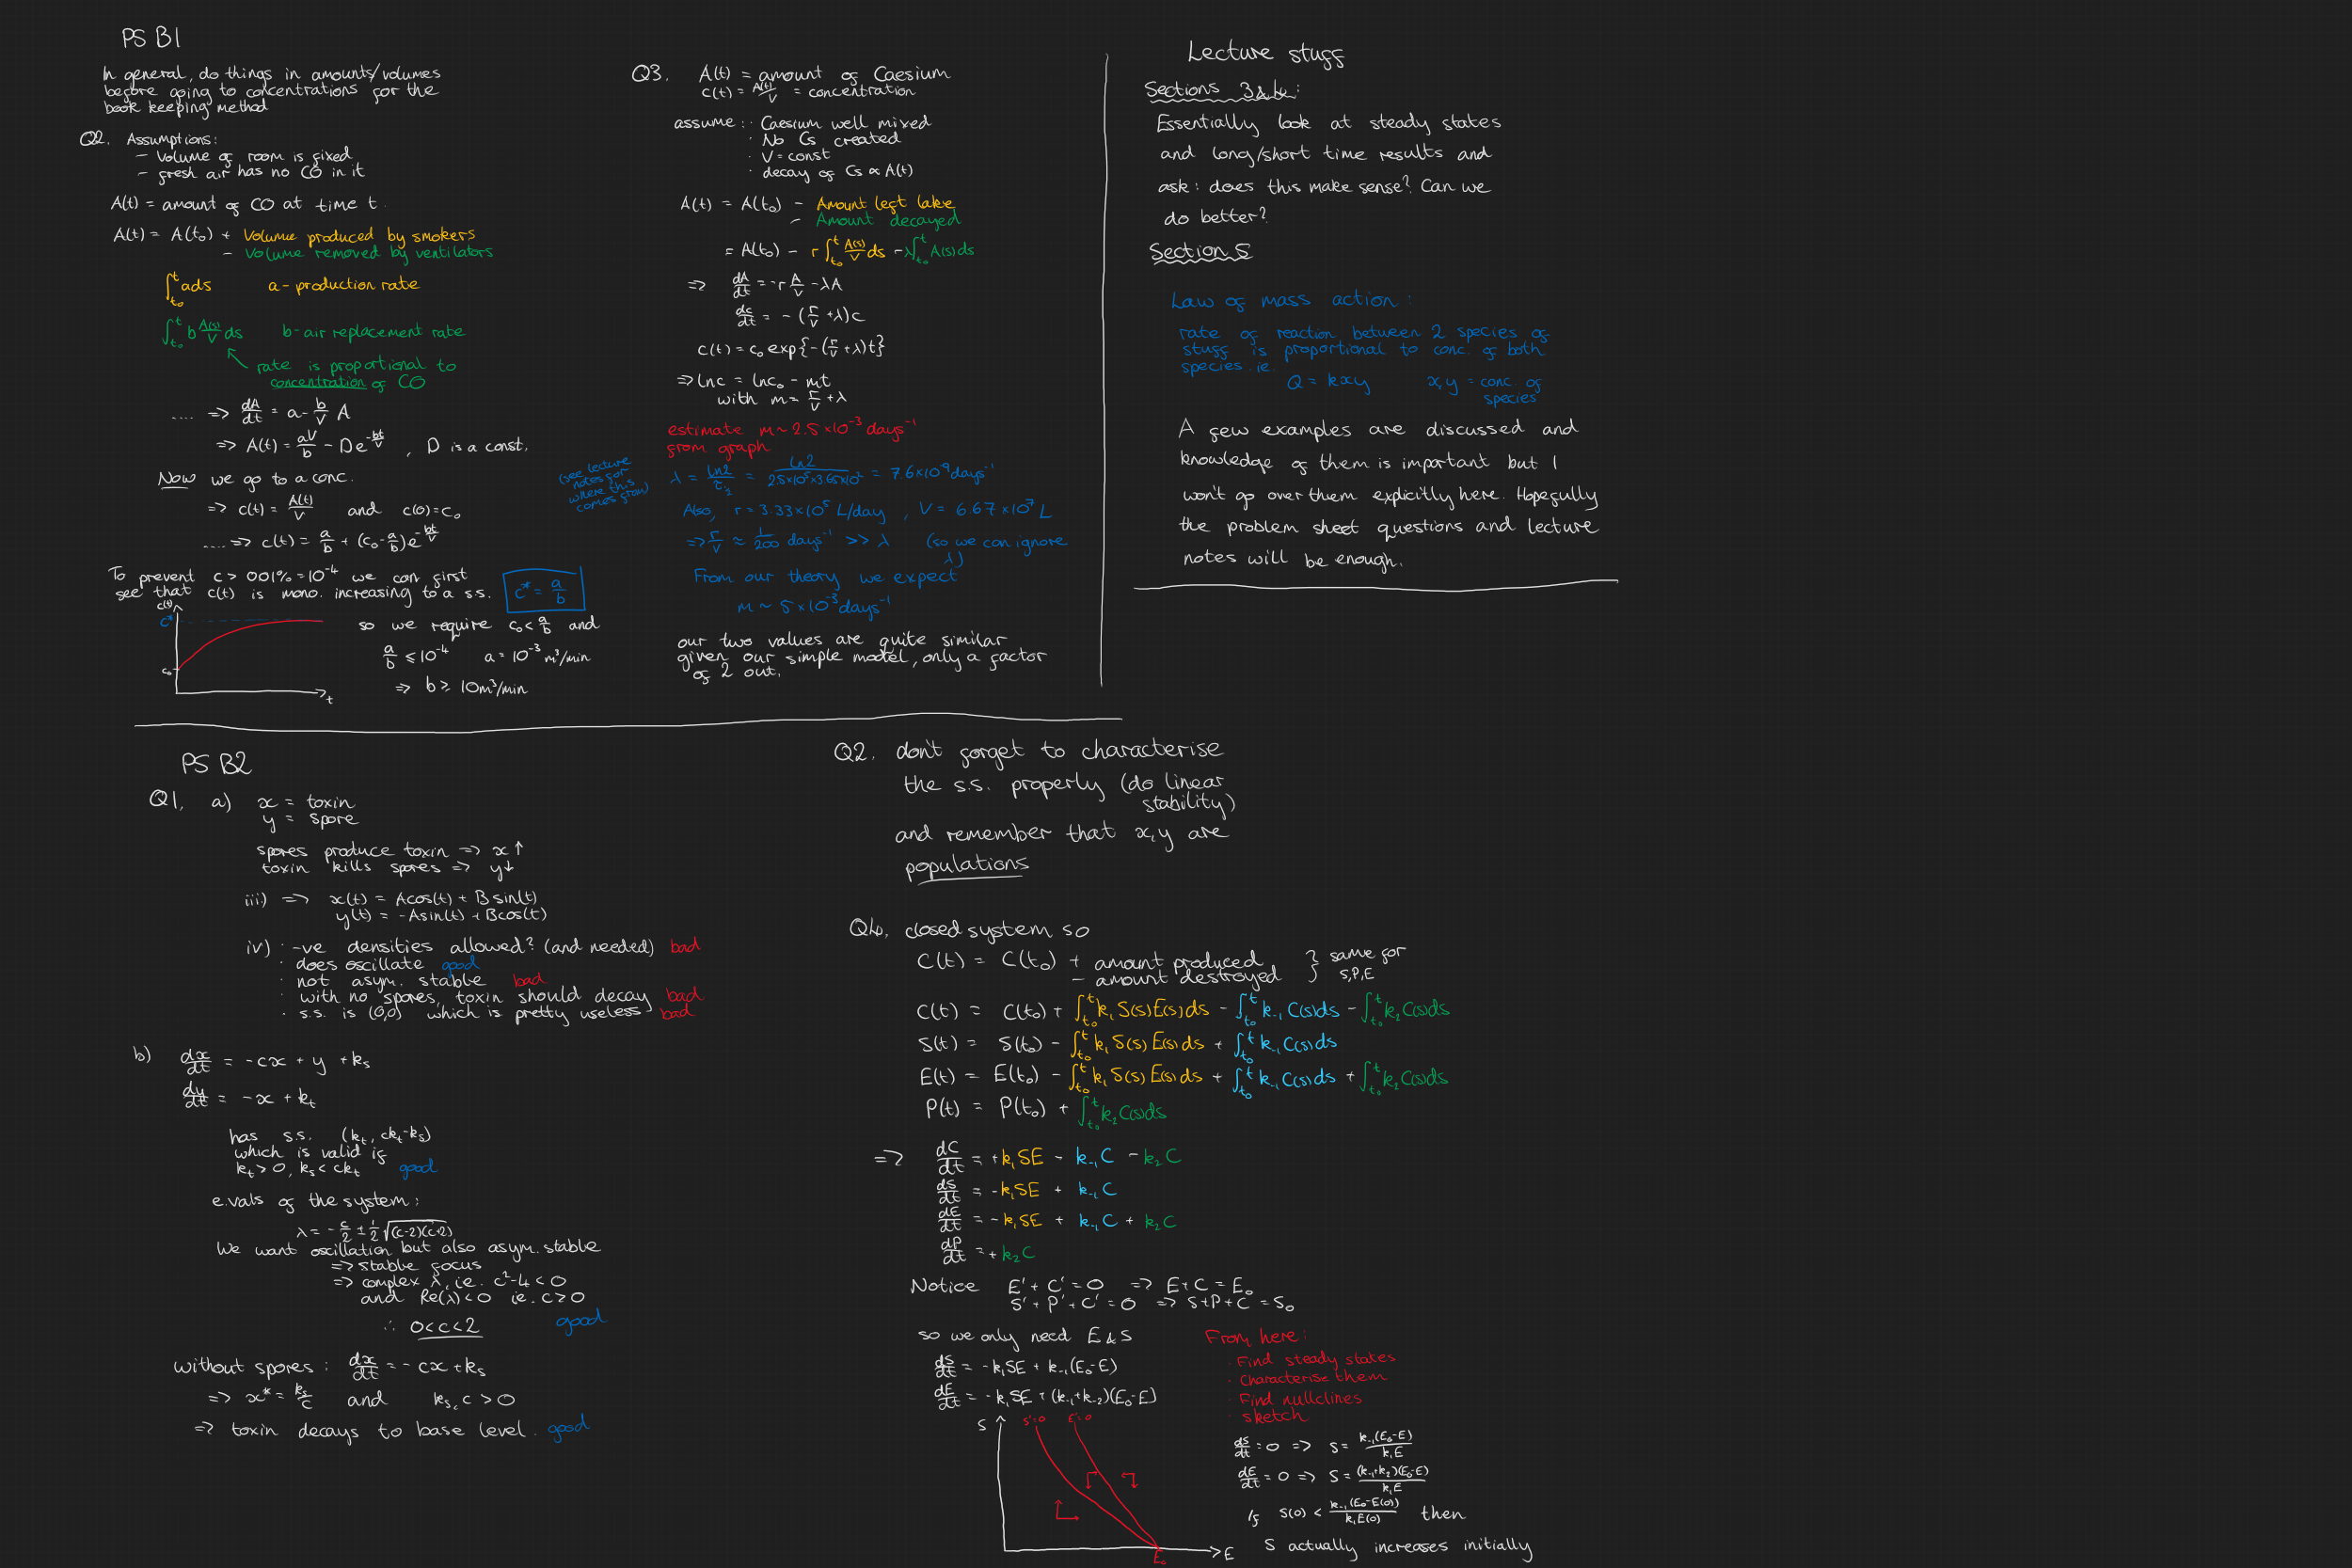 PS B1
In general, do things in amounts/volumes
before going to concentrations for the
book keeping method
Q2. Assumptions:
- Volume of room is fixed
- fresh air has no CO in it
A(t) = amount of CO at time t.
A(t) = A(t₀) + Volume produced by smokers
- Volume removed by ventilators
∫_{t₀}^t a ds   a - production rate
∫_{t₀}^t b A(s)/V ds   b - air replacement rate
rate is proportional to
concentration of CO
.... => dA/dt = a - b/V A
=> A(t) = aV/b - De^{-bt/V}, D is a const.
Now we go to a conc.
=> c(t) = A(t)/V and c(0) = c₀
.... => c(t) = a/b + (c₀ - a/b)e^{-bt/V}
To prevent c > 001% = 10⁻⁴ we can first
see that c(t) is mono. increasing to a s.s.
c* = a/b
c(t)
c*
c₀
t
so we require c₀ < a/b and
a/b ≤ 10⁻⁴   a = 10⁻³ m³/min
=> b ≥ 10m³/min
Q3. A(t) = amount of Caesium
c(t) = A(t)/V = concentration
assume: · Caesium well mixed
· No Cs created
· V = const
· decay of Cs ∝ A(t)
A(t) = A(t₀) - Amount left lake
- Amount decayed
= A(t₀) - r∫_{t₀}^t A(s)/V ds - λ∫_{t₀}^t A(s)ds
=> dA/dt = -r A/V - λA
dc/dt = - (r/V + λ)c
c(t) = c₀ exp{-(r/V + λ)t}
=> lnc = lnc₀ - mt
with m = r/V + λ
estimate m ~ 2.5 × 10⁻³ days⁻¹
from graph
(see lecture
notes for
where this
comes from)
λ = ln2/τ_½ = ln2/(2.5×10⁵×3.65×10²) = 7.6×10⁻⁹ days⁻¹
Also, r = 3.33×10⁵ L/day, V = 6.67×10⁷ L
=> r/V ≈ 1/200 days⁻¹ >> λ (so we can ignore
λ)
From our theory we expect
m ~ 5×10⁻³ days⁻¹
our two values are quite similar
given our simple model, only a factor
of 2 out.
Lecture stuff
Sections 3&4:
Essentially look at steady states
and long/short time results and
ask: does this make sense? Can we
do better?
Section 5
Law of mass action:
rate of reaction between 2 species of
stuff is proportional to conc. of both
species. ie.
Q = kxy   x,y = conc. of
species
A few examples are discussed and
knowledge of them is important but I
won't go over them explicitly here. Hopefully
the problem sheet questions and lecture
notes will be enough.
PS B2
Q1. a) x = toxin
y = spore
spores produce toxin => x↑
toxin kills spores => y↓
iii) => x(t) = Acos(t) + Bsin(t)
y(t) = -Asin(t) + Bcos(t)
iv) · -ve densities allowed? (and needed) bad
· does oscillate good
· not asym. stable bad
· with no spores, toxin should decay bad
· s.s. is (0,0) which is pretty useless bad
b) dx/dt = -cx + y + kₛ
dy/dt = -x + kₜ
has s.s. (kₜ, ckₜ-kₛ)
which is valid if
kₜ > 0, kₛ < ckₜ good
e.vals of the system:
λ = -c/2 ± 1/2 √((c-2)(c+2))
We want oscillation but also asym. stable
=> stable focus
=> complex λ, i.e. c²-4 < 0
and Re(λ) < 0 ie. c > 0
∴ 0<c<2 good
without spores: dx/dt = -cx + kₛ
=> x* = kₛ/c and kₛ, c > 0
=> toxin decays to base level. good
Q2. don't forget to characterise
the s.s. properly (do linear
stability)
and remember that x,y are
populations
Q4. closed system so
C(t) = C(t₀) + amount produced } same for
- amount destroyed } S,P,E
C(t) = C(t₀) + ∫_{t₀}^t k₁S(s)E(s)ds - ∫_{t₀}^t k₋₁C(s)ds - ∫_{t₀}^t k₂C(s)ds
S(t) = S(t₀) - ∫_{t₀}^t k₁S(s)E(s)ds + ∫_{t₀}^t k₋₁C(s)ds
E(t) = E(t₀) - ∫_{t₀}^t k₁S(s)E(s)ds + ∫_{t₀}^t k₋₁C(s)ds + ∫_{t₀}^t k₂C(s)ds
P(t) = P(t₀) + ∫_{t₀}^t k₂C(s)ds
=> dC/dt = +k₁SE - k₋₁C - k₂C
dS/dt = -k₁SE + k₋₁C
dE/dt = -k₁SE + k₋₁C + k₂C
dP/dt = +k₂C
Notice E' + C' = 0 => E+C = E₀
S' + P' + C' = 0 => S+P+C = S₀
so we only need E & S
dS/dt = -k₁SE + k₋₁(E₀-E)
dE/dt = -k₁SE + (k₋₁+k₋₂)(E₀-E)
From here:
· Find steady states
· Characterise them
· Find nullclines
· Sketch
S
S'=0
E'=0
E₀
E
dS/dt = 0 => S = k₋₁(E₀-E)/k₁E
dE/dt = 0 => S = (k₋₁+k₂)(E₀-E)/k₁E
If S(0) < k₋₁(E₀-E(0))/k₁E(0) then
S actually increases initially